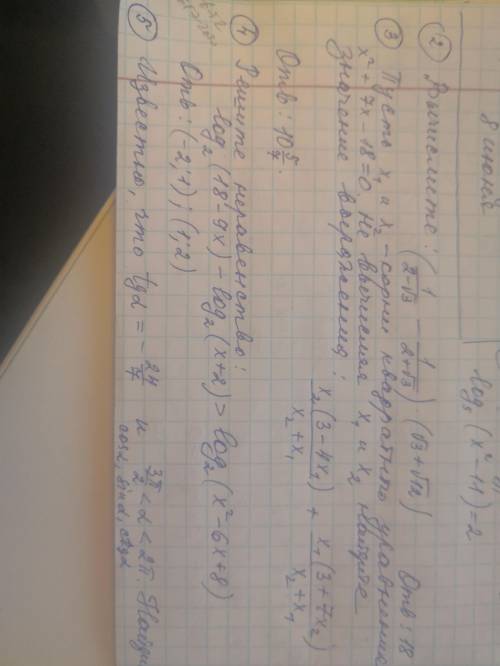 8 июня
log₅(x² - 11) = 2
② Вычислите: (1/(2-√3) - 1/(2+√3)) · (√3+√12) Отв: 18
③ Пусть x₁ и x₂ - корни квадратного уравнения
x² + 7x - 18 = 0. Не вычисляя x₁ и x₂ найдите
значение выражения: x₂(3 - 4x₁)/(x₂ + x₁) + x₁(3 + 7x₂)/(x₂ + x₁)
Отв: 10 5/7.
④ Решите неравенство:
log₂(18 - 9x) - log₂(x+2) > log₂(x² - 6x + 8)
Отв: (-2; 1); (1; 2)
⑤ Известно, что tgα = - 24/7 и 3π/2 < α < 2π. Найди
cosα, sinα, ctgα